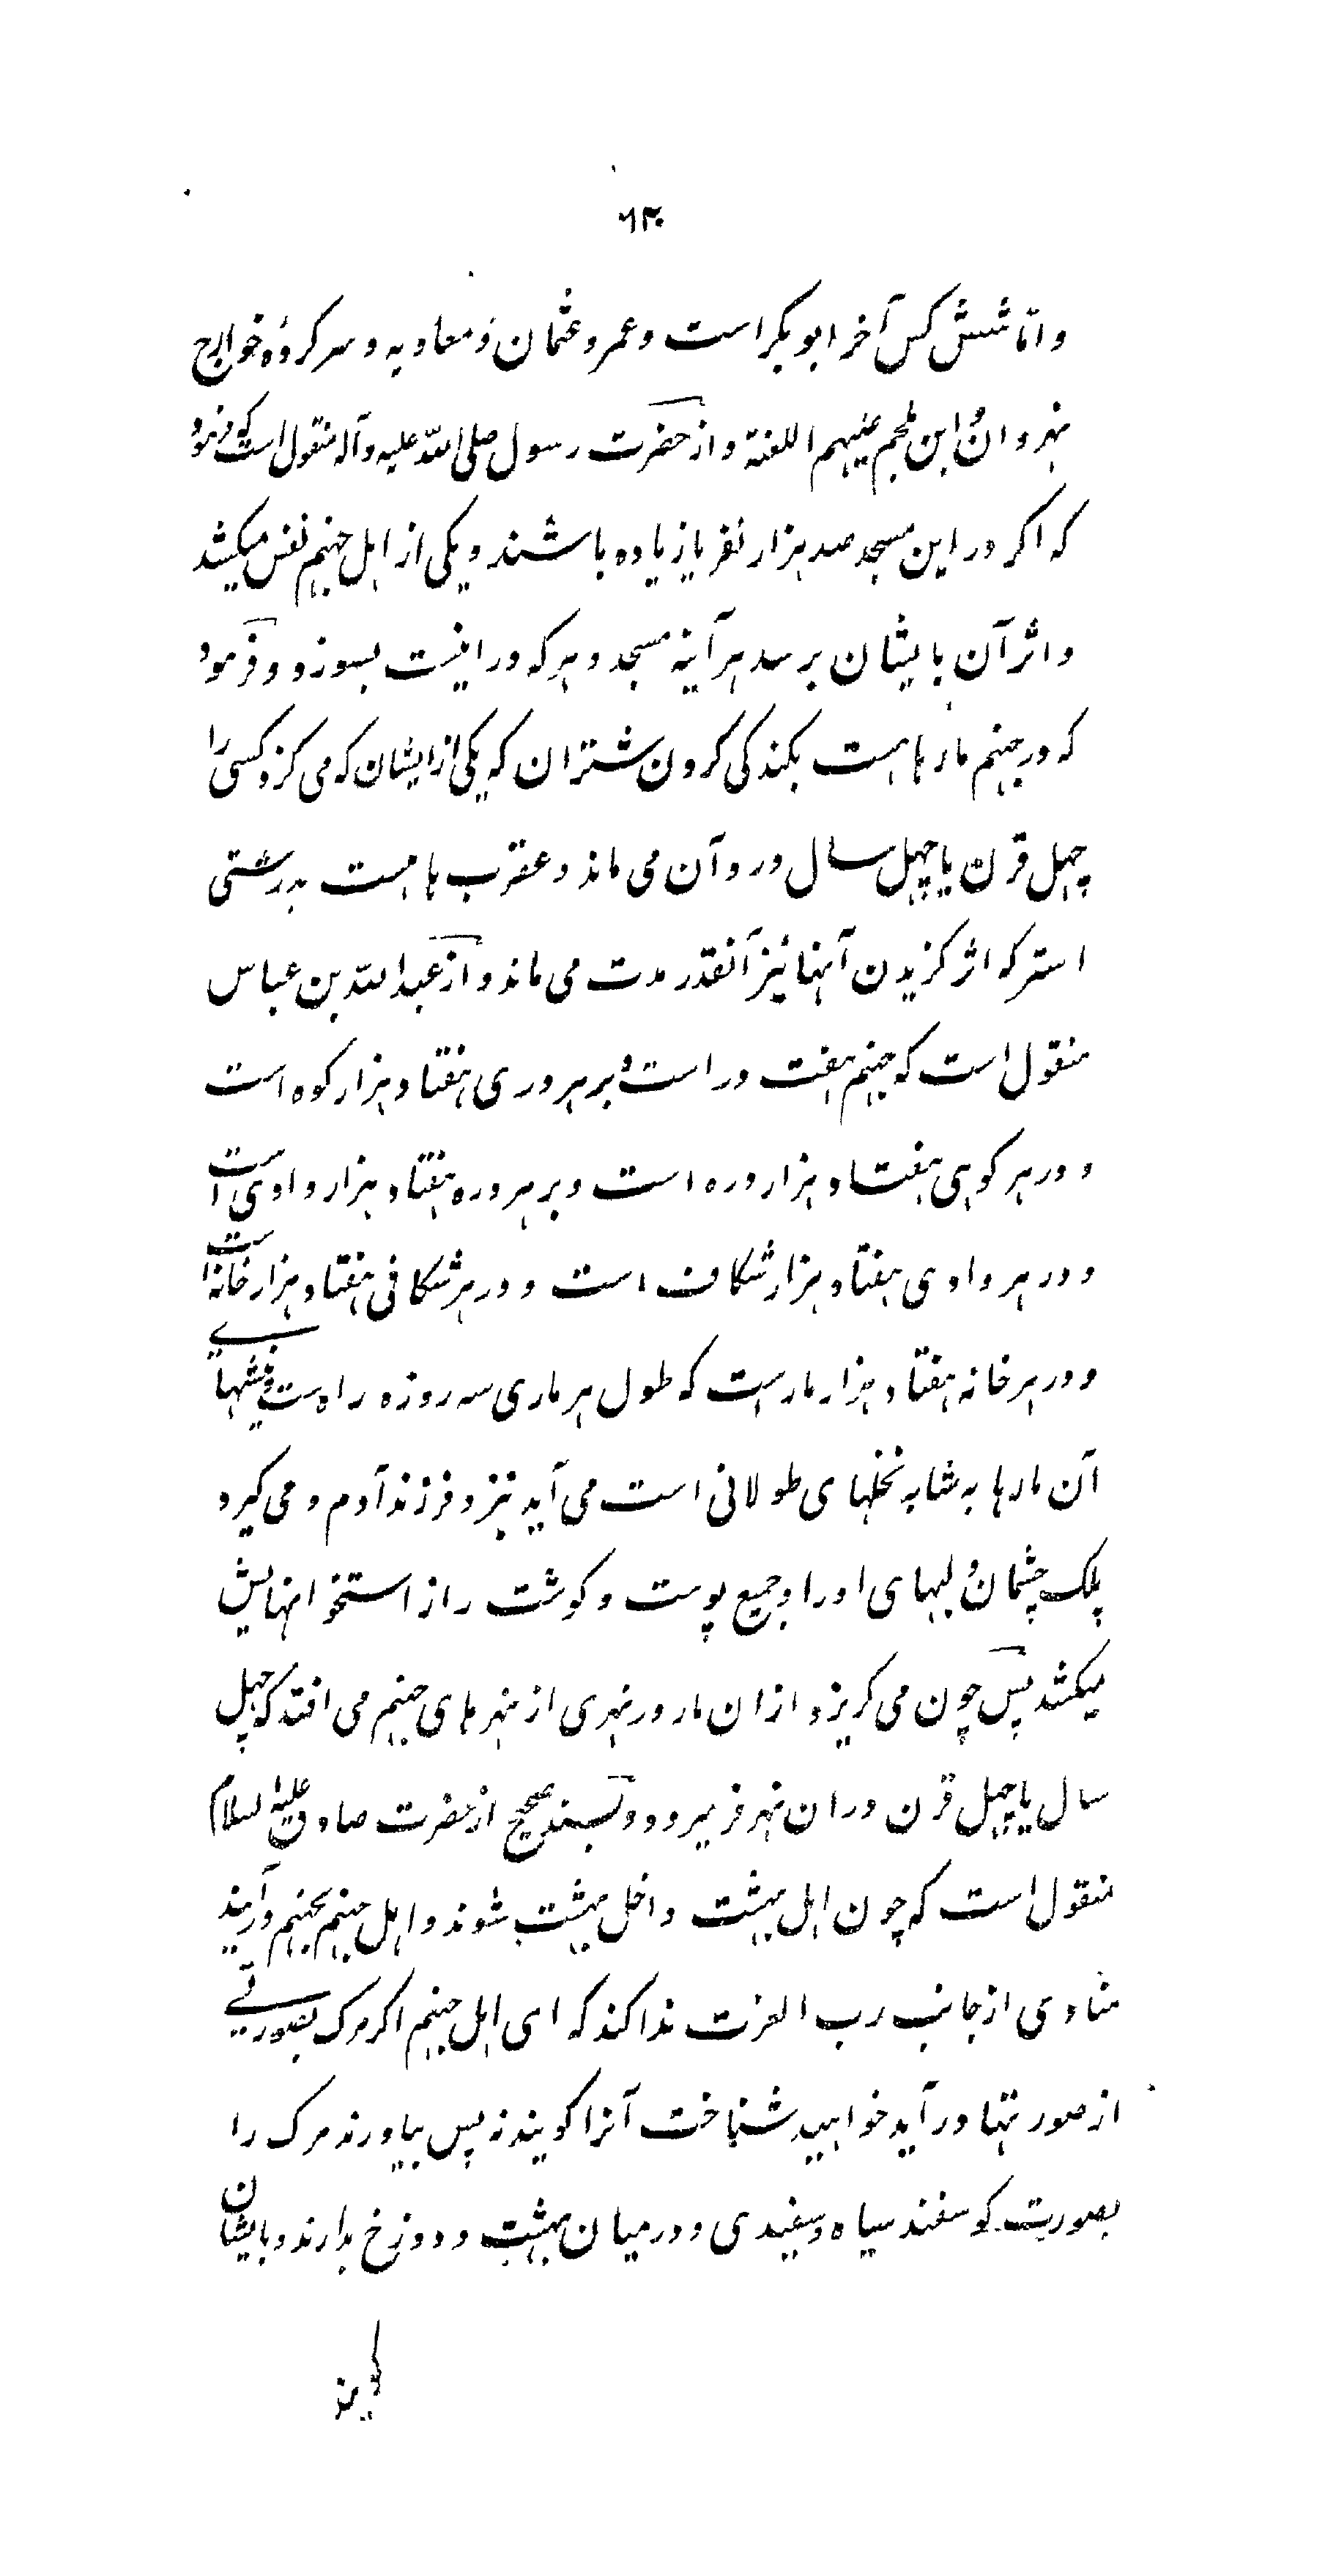 ۶۳۰
و امّا شش کس آخر ابو بکر است و عمر و عثمان و معاویه و سر کرده خوارج
نهروان و ابن ملجم علیهم اللعنة و از حضرت رسول صلی الله علیه و آله منقول است که فرمود
که اکر در این مسجد صد هزار نفر یا زیاده باشند و یکی از اهل جهنم نفس میکشد
و اثر آن بایشان برسد هر آینه مسجد و هر که در اینست بسوزد و فرمود
که در جهنم مارها هست بکندکی کردن شتران که یکی از ایشان که می کزد کسی را
چهل قرن یا چهل سال درد آن می ماند و عقرب ها هست بدرشتی
استر که اثر کزیدن آنها نیز آنقدر مدت می ماند و از عبد الله بن عباس
منقول است که جهنم هفت در است و بر هر دری هفتاد هزار کوه است
و در هر کوهی هفتاد هزار دره است و بر هر دره هفتاد هزار وادی است
و در هر وادی هفتاد هزار شکاف است و در هر شکافی هفتاد هزار خانه است
و در هر خانه هفتاد هزار مار هست که طول هر ماری سه روزه راهست و نیشهای
آن مارها به شابه نخلهای طولانی است می آید نیزد فرزند آدم و می کیرد
پلک چشمان و لبهای او را و جمیع پوست و کوشت را از استخوانهایش
میکشد پس چون می کریزد از ان مار در نهری از نهرهای جهنم می افتد که چهل
سال یا چهل قرن در ان نهر فرمیرود و بسند صحیح از حضرت صادق علیه السلام
منقول است که چون اهل بهشت داخل بهشت شوند و اهل جهنم بجهنم درآیند
منادی از جانب رب العزت ندا کند که ای اهل جهنم اکر مرک بصورتی
از صورتها درآید خواهید شناخت آنرا کویند نه پس بیاورند مرک را
بصورت کوسفند سیاه و سفیدی و در میان بهشت و دوزخ بدارند و بایشان
کویند